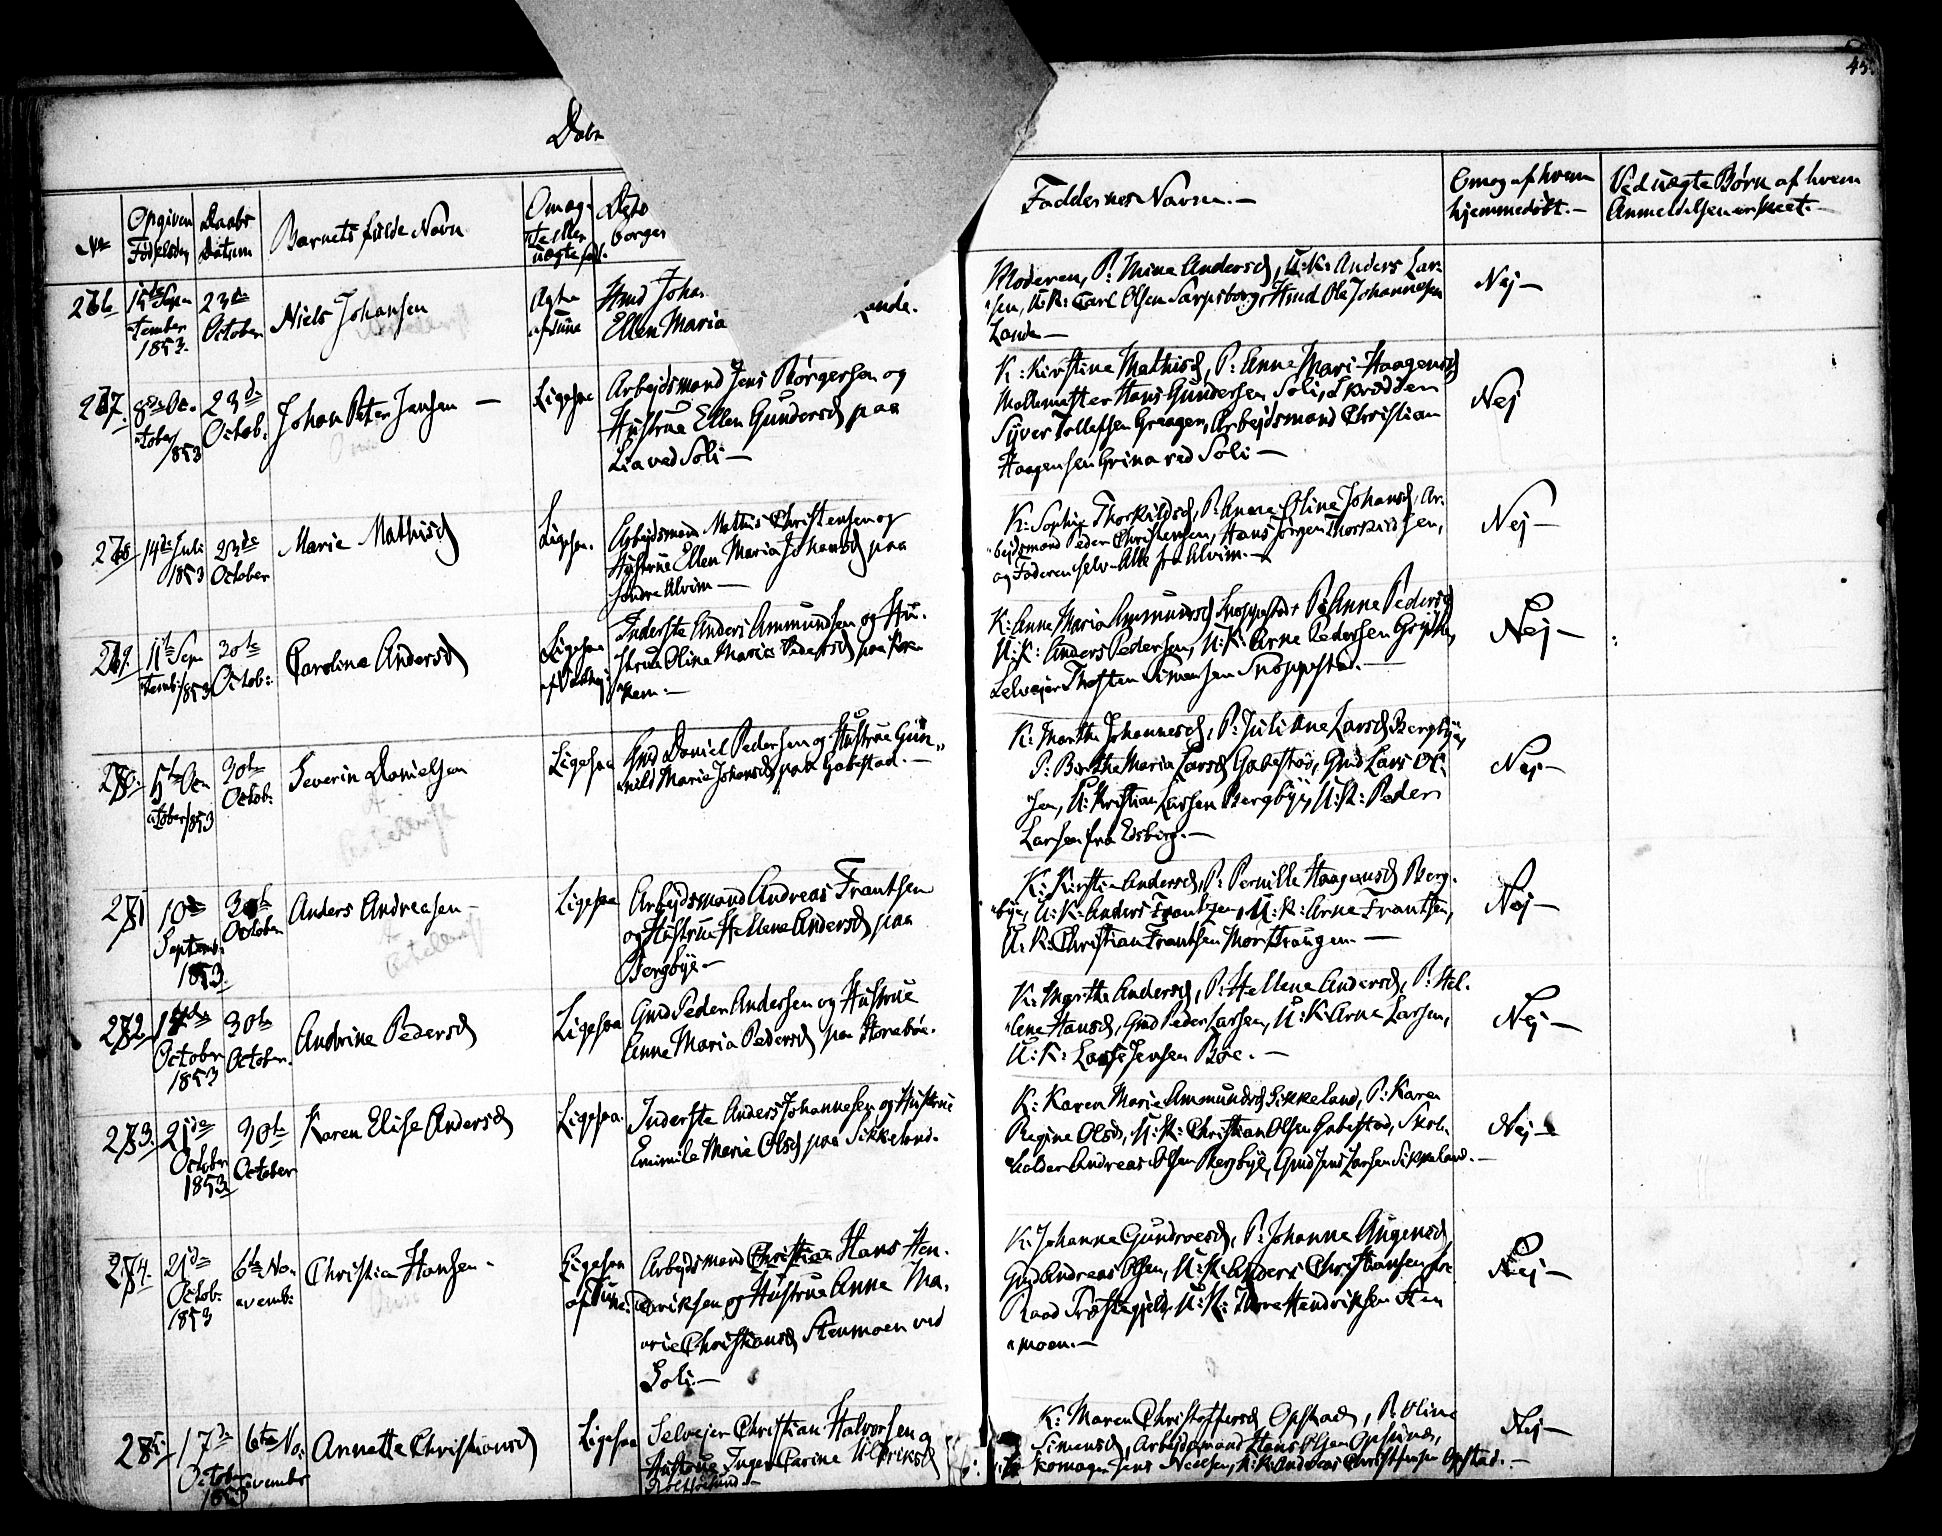 45.
Døbt
No
Opgiven Fødselsdag
Daabs Datum
Barnets fulde Navn
Om ægte eller uægte
Faddernes Navn.—
Om og af hvem hjemmedøbt.—
Ved uægte Børn af hvem Anmeldelsen er skeet.—
15de September 1853.
23de October
Niels Johansen
Ellen Maria
Moderen, P: Mina Andersd, U:K: Anders Lar-
sen, U:K: Carl Olsen Sarpsborg, Hmd Ole Johannesen
Lande—
Nej—
8de October 1853
23de Octob:
Johan Peter Jensen —
Ligesaa
Arbejdsmand Jens Børgersen og
Hustrue Ellen Gundersd paa
Lia ved Soli—
K: Kirstine Mathisd, P: Anne Mari Haagensd
Møllemester Hans Gundersen Soli,
Syver Tollefsen Greagen, Arbejdsmand Christian
Haagensen Grina ved Soli—
Nej
14de Juli 1853
23de October
Marie Mathisd
Ligesaa.
Arbejdsmand Mathis Christensen og
Hustrue Ellen Maria Johansd paa
Søndre Alvim—
K: Sophie Thorkildsd, P: Anne Oline Johansd, Ar-
bejdsmand Peder Christensen, Hans Jørgen Thorkildsen,
og Faderen selv- Alle fra Alvim.—
Nej—
11te September 1853
30te Octob:
Caroline Andersd
Ligesaa
Inderste Anders Ammundsen og Hu-
strue Oline Maria Pedersd paa
K: Anne Maria Ammundsd P: Anne Pedersd
U:K: Anders Pedersen, U:K: Arne Pedersen
Selvejer Thosten Simensen
Nej—
5te October 1853
30te Octob:
Severin Danielsen
Ligesaa
Gmd Daniel Pedersen og Hustrue Gun-
nild Marie Johansd paa Gabestad.—
K: Marthe Johannesd, P: Juliane Larsd Bergbye,
P: Berthe Maria Larsd Gabestad, Gmd Lars Ol-
sen, U: Kristian Larsen Bergbye, U:K: Peder
Larsen fra Edsberg.—
Nej—
271
10de Septemb: 1853.
30te October
Anders Andreasen—
Ligesaa
Arbejdsmand Andreas Frantsen
og Hustrue Hellene Andersd paa
Bergbye—
K: Kirstin Andersd, P: Pernille Haagensd Berg-
bye, U:K: Anders Frantzen, U:K: Arne Frantsen,
U:K: Christian Frantsen
Nej—
272
October 1853
30te October.
Andrine Pedersd
Ligesaa
Gmd Peder Andersen og Hustrue
Anne Maria Pedersd paa Storebøe.
K: Marthe Andersd, P: Hellene Andersd, P: Hel-
lene Hansd, Gmd Peder Larsen, U:K: Arne Larsen,
U:K: Lars Jensen Bøe.—
Nej—
273.
21de October 1853
30te October
Karen Elise Andersd
Ligesaa.
Inderste Anders Johannesen og Hustrue
Emmile Marie Olsd paa Sikkeland.
K: Karen Marie Ammundsd Sikkeland, P: Karen
Regine Olsd, U:K: Christian Olsen Gabestad, Skole-
holder Andreas Olsen Bergbye, Gmd Jens Larsen Sikkeland.—
Nej—
274.
21de Octob: 1853
6te Novemb:
Christian Hansen.
Ligesaa af Tune
Arbejdsmand Hans Hen-
driksen og Hustrue Anne Ma-
rie Christiansd Stenmoen ved
Soli—
K: Johanne Gundersd, P: Johanne Augensd
Gmd Andreas Olsen, U:K: Anders Christiansen fra
Raad Præstegjeld, U:K: Thore Hendriksen Sten
moen.—
Nej—
17de October 1853
6te November
Annette Christiansd
Ligesaa
Selvejer Christian Halvorsen og
Hustrue Inger Carine Ulriksd
K: Maren Christoffersd Opstad, P. Oline
Simensd, Arbejdsmand Hans Olsen Opsund,
Skomager Jens Nielsen, U:K: Andreas Christensen Opstad.—
Nej—